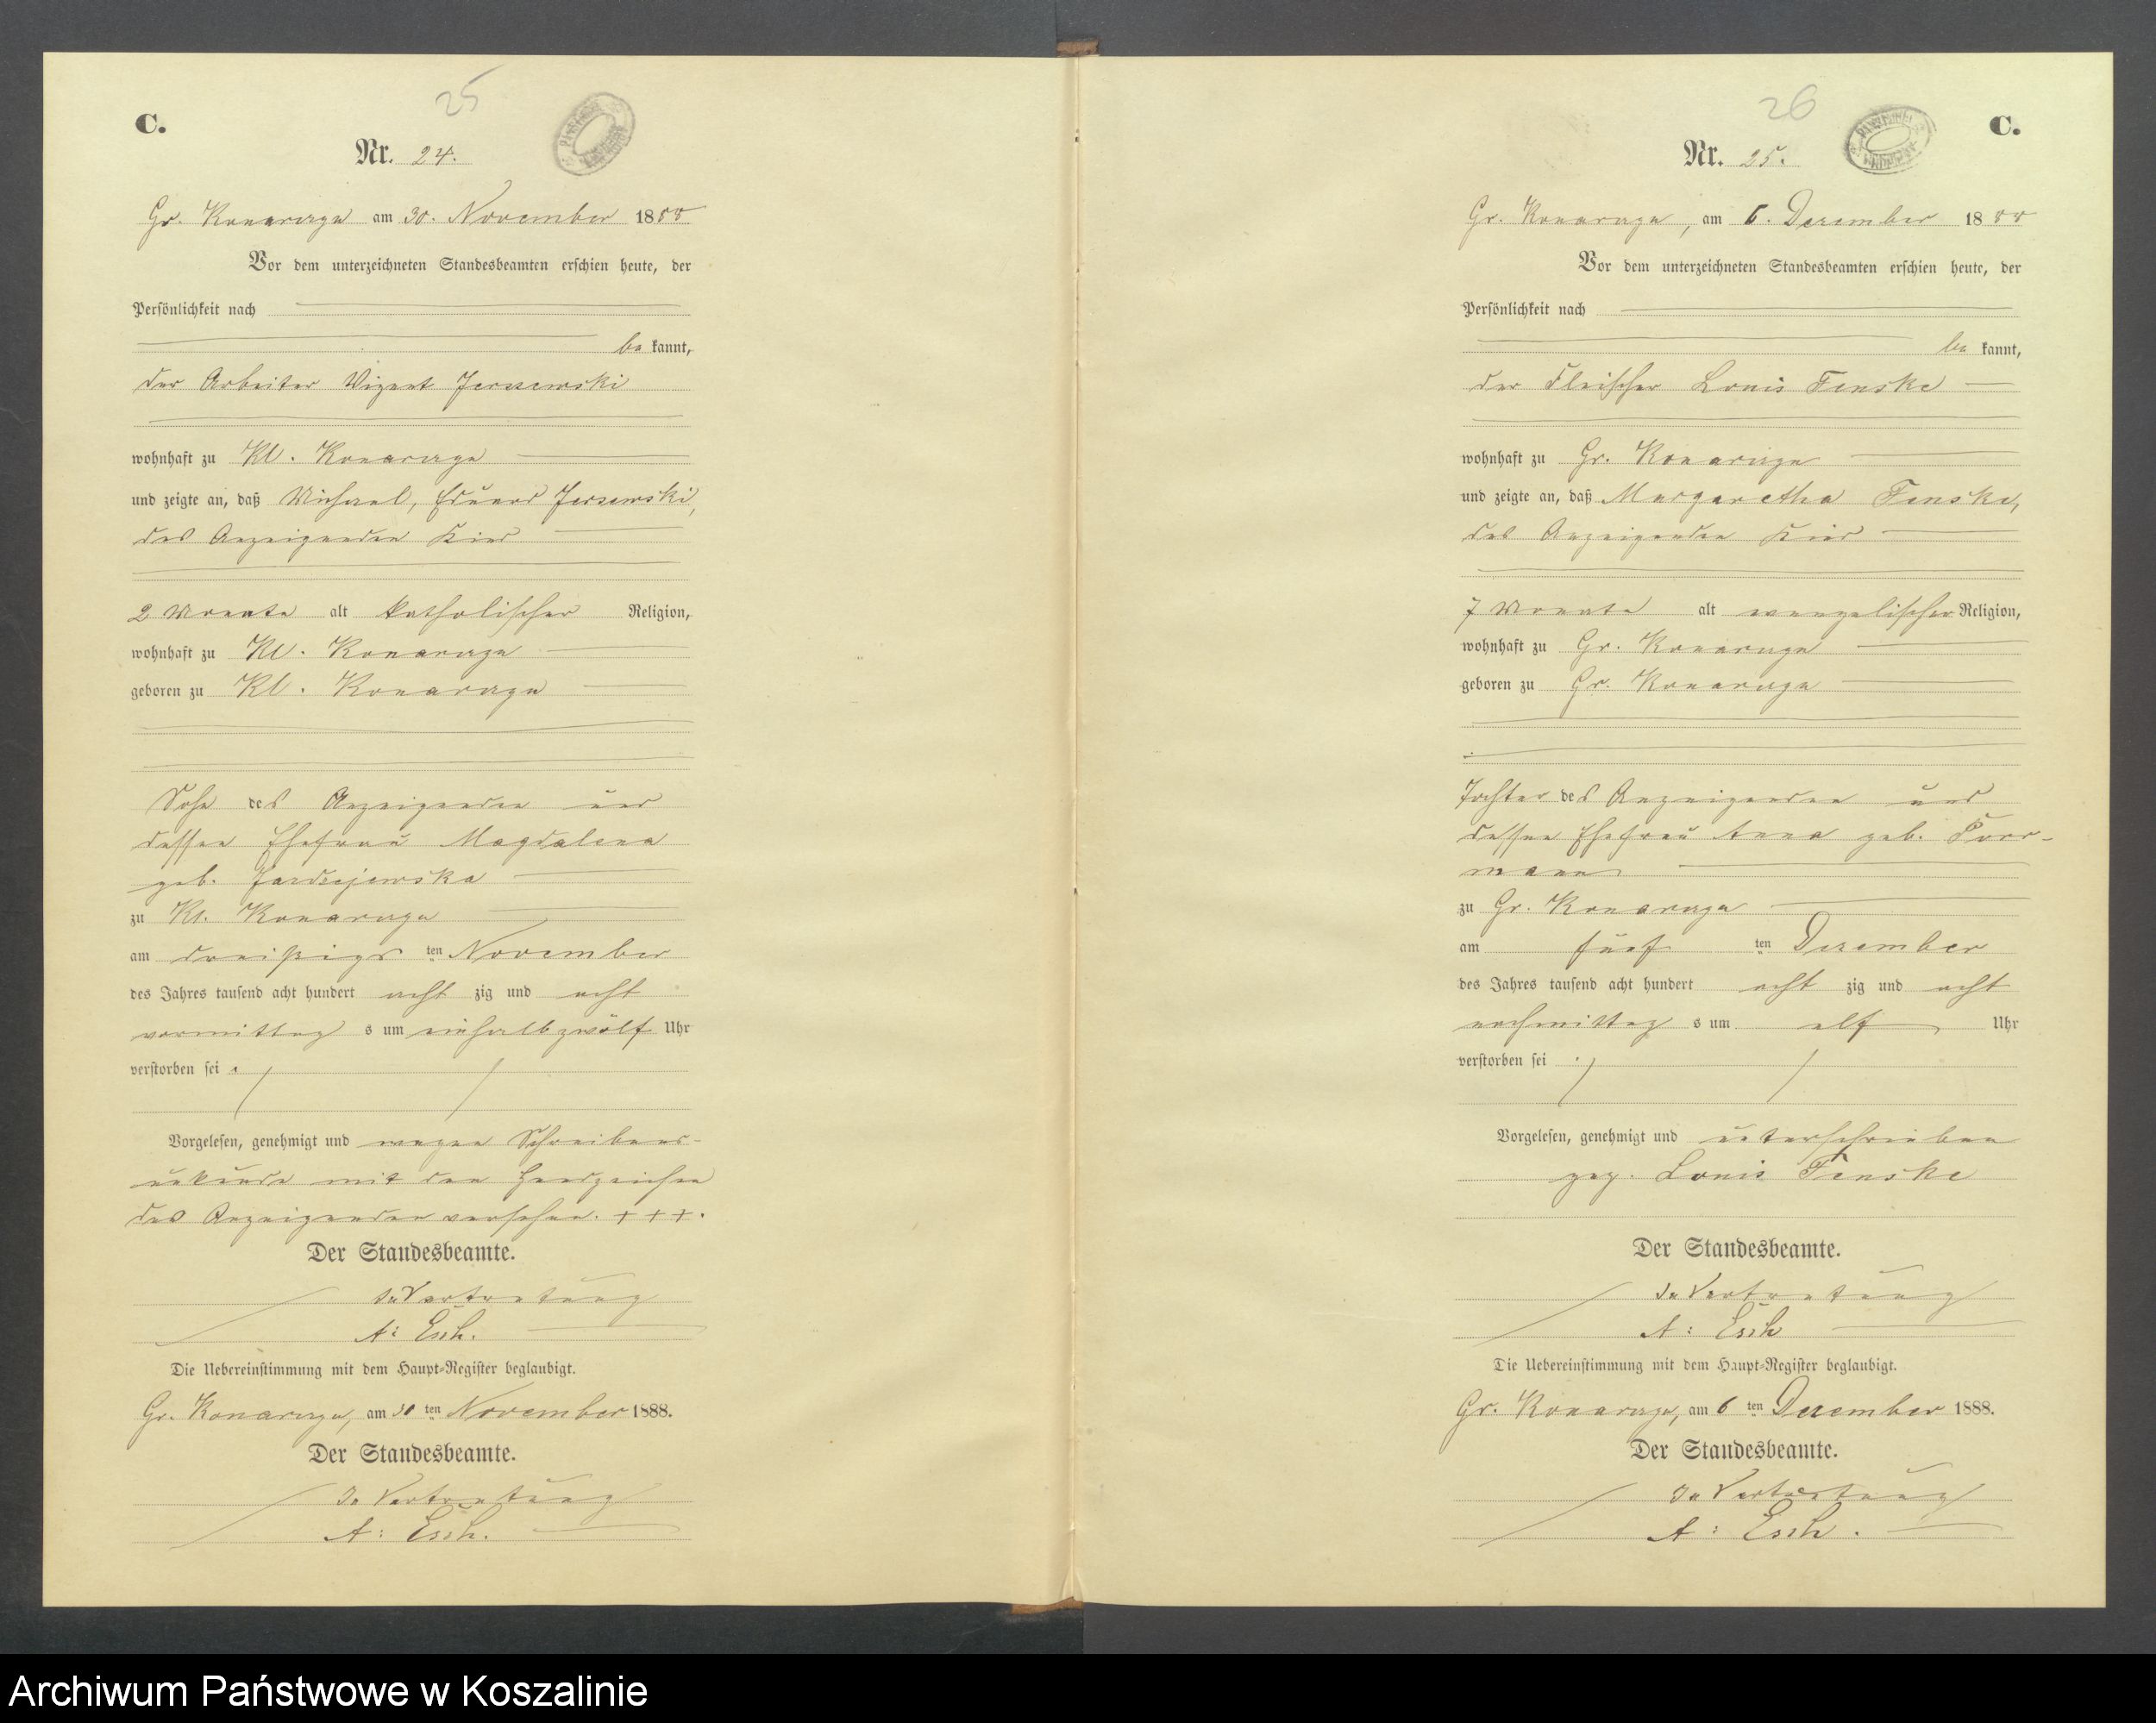 25
C.
Nr. 24.
Gr. Konarczyn am 30. November 1888
Vor dem unterzeichneten Standesbeamten erschien heute, der
Persönlichkeit nach
be kannt,
der Arbeiter Vizent
wohnhaft zu Kl. Konarczyn
und zeigte an, daß Michael, Eduard Jerszewski,
des Anzeigenden Kind
2 Monate alt katholischer Religion,
wohnhaft zu Kl. Konarczyn
geboren zu Kl. Konarczyn
Sohn des Anzeigenden und
dessen Ehefrau Magdalena
geb.
zu Kl. Konarczyn
am dreißigs ten November
des Jahres tausend acht hundert acht zig und acht
vormittag s um einhalb zwölf Uhr
verstorben sei.
Vorgelesen, genehmigt und wegen Schreibens-
unkunde mit den Handzeichen
des Anzeigenden versehen. + + +.
Der Standesbeamte.
In Vertretung
A: Esch.
Die Uebereinstimmung mit dem Haupt-Register beglaubigt.
Gr. Konarczyn, am 30 ten November 1888.
Der Standesbeamte.
In Vertretung
A: Esch.
26
C.
Nr. 25.
Gr. Konarczyn, am 6. Dezember 1888
Vor dem unterzeichneten Standesbeamten erschien heute, der
Persönlichkeit nach
be kannt,
der Fleischer Louis Fenske
wohnhaft zu Gr. Konarczyn
und zeigte an, daß Margaretha Fenske,
des Anzeigenden Kind
7 Monate alt evangelischer Religion,
wohnhaft zu Gr. Konarczyn
geboren zu Gr. Konarczyn
Tochter des Anzeigenden und
dessen Ehefrau Anna geb.
mann
zu Gr. Konarczyn
am fünf ten Dezember
des Jahres tausend acht hundert acht zig und acht
nachmittag s um elf Uhr
verstorben sei.
Vorgelesen, genehmigt und unterschrieben
gez. Louis Fenske
Der Standesbeamte.
In Vertretung
A: Esch
Die Uebereinstimmung mit dem Haupt-Register beglaubigt.
Gr. Konarczyn, am 6 ten Dezember 1888.
Der Standesbeamte.
In Vertretung
A: Esch.
Archiwum Państwowe w Koszalinie